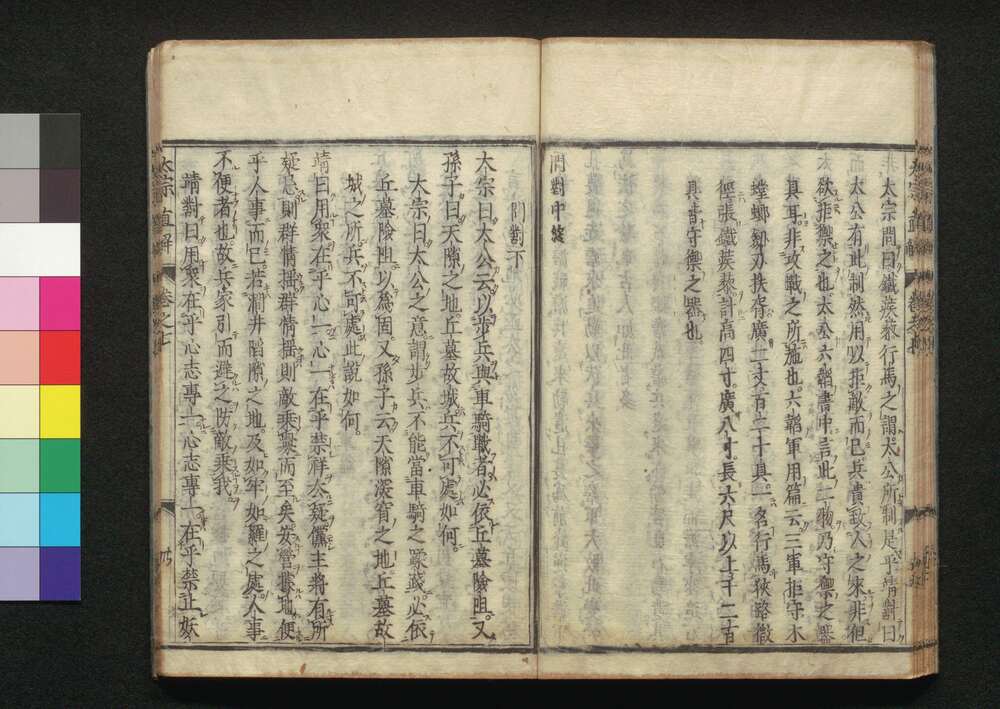 太宗問曰鐵蒺藜行馬之謂太公所制是乎靖對曰
太公有此制然用以拒敵而已兵貴致人之來非但
欲拒禦之也太公六韜書中言此二物乃守禦之器
具耳非攻戰之所施也六韜軍用篇云三軍拒守木
螳螂劔刃扶胥廣二丈百二十具一名行馬狹路微
徑張鐵蒺藜計高四寸廣八寸長六尺以上千二百
具皆守禦之器也
問對中終
問對下
太宗曰太公云以步兵與車騎戰者必依丘墓險阻。又
孫子曰天隙之地丘墓故城兵不可處如何。
太宗曰太公之意謂步兵不能當車騎之蹂踐必依
丘墓險阻以爲固又孫子云天隙深窅之地丘墓故
城之所兵不可處此說如何。
靖曰用衆在乎心一心一在乎禁祥去疑儻主將有所
疑忌則群情揺群情揺則敵乗釁而至矣安營據地便
乎人事而已若澗井陷隙之地及如牢如羅之處人事
不便者也故兵家引而避之防敵乗我
靖對曰用衆在乎心志專一心志專一在乎禁止妖
太宗直解 卷之七